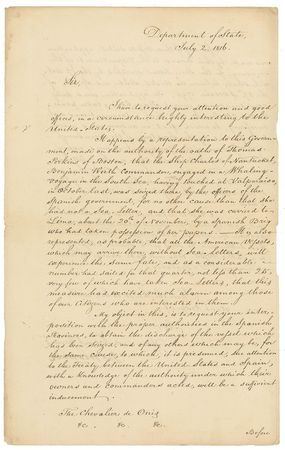 Department of State,
July 2, 1816.
Sir,
I have to request your attention and good
offices, in a circumstance highly interesting to the
United States.
It appears by a representation to this Govern-
ment, made on the authority of the oaths of Thomas
Perkins of Boston, that the Ship Charles of Nantucket,
Benjamin Worth Commander, engaged in a Whaling
Voyage in the South Sea, having touched at Valparaiso,
in October last, was seized there, by the officers of the
Spanish government, for no other cause than that she
had not a Sea Letter, and that she was carried to
Lima, about the 20th of November, by a Spanish Brig
who had taken possession of her papers. It is also
represented, as probable, that all the American Vessels,
which may arrive there, without Sea-Letters, will
experience the same fate; and as a considerable
number had sailed for that quarter, not less than 25,
very few of which have taken Sea Letters, that this
measure has excited much alarm among those
of our Citizens who are interested in them.
My object in this, is to request your inter-
position with the proper authorities in the Spanish
Provinces, to obtain the discharge of the vessel which
has been seized, and of any others which may be, for
the same cause; to which, it is presumed, the attention
to the Treaty between the United States and Spain,
with a knowledge of the authority under which their
owners and commanders acted, will be a sufficient
inducement.
The Chevalier de Onis
&c. &c. &c.
Before